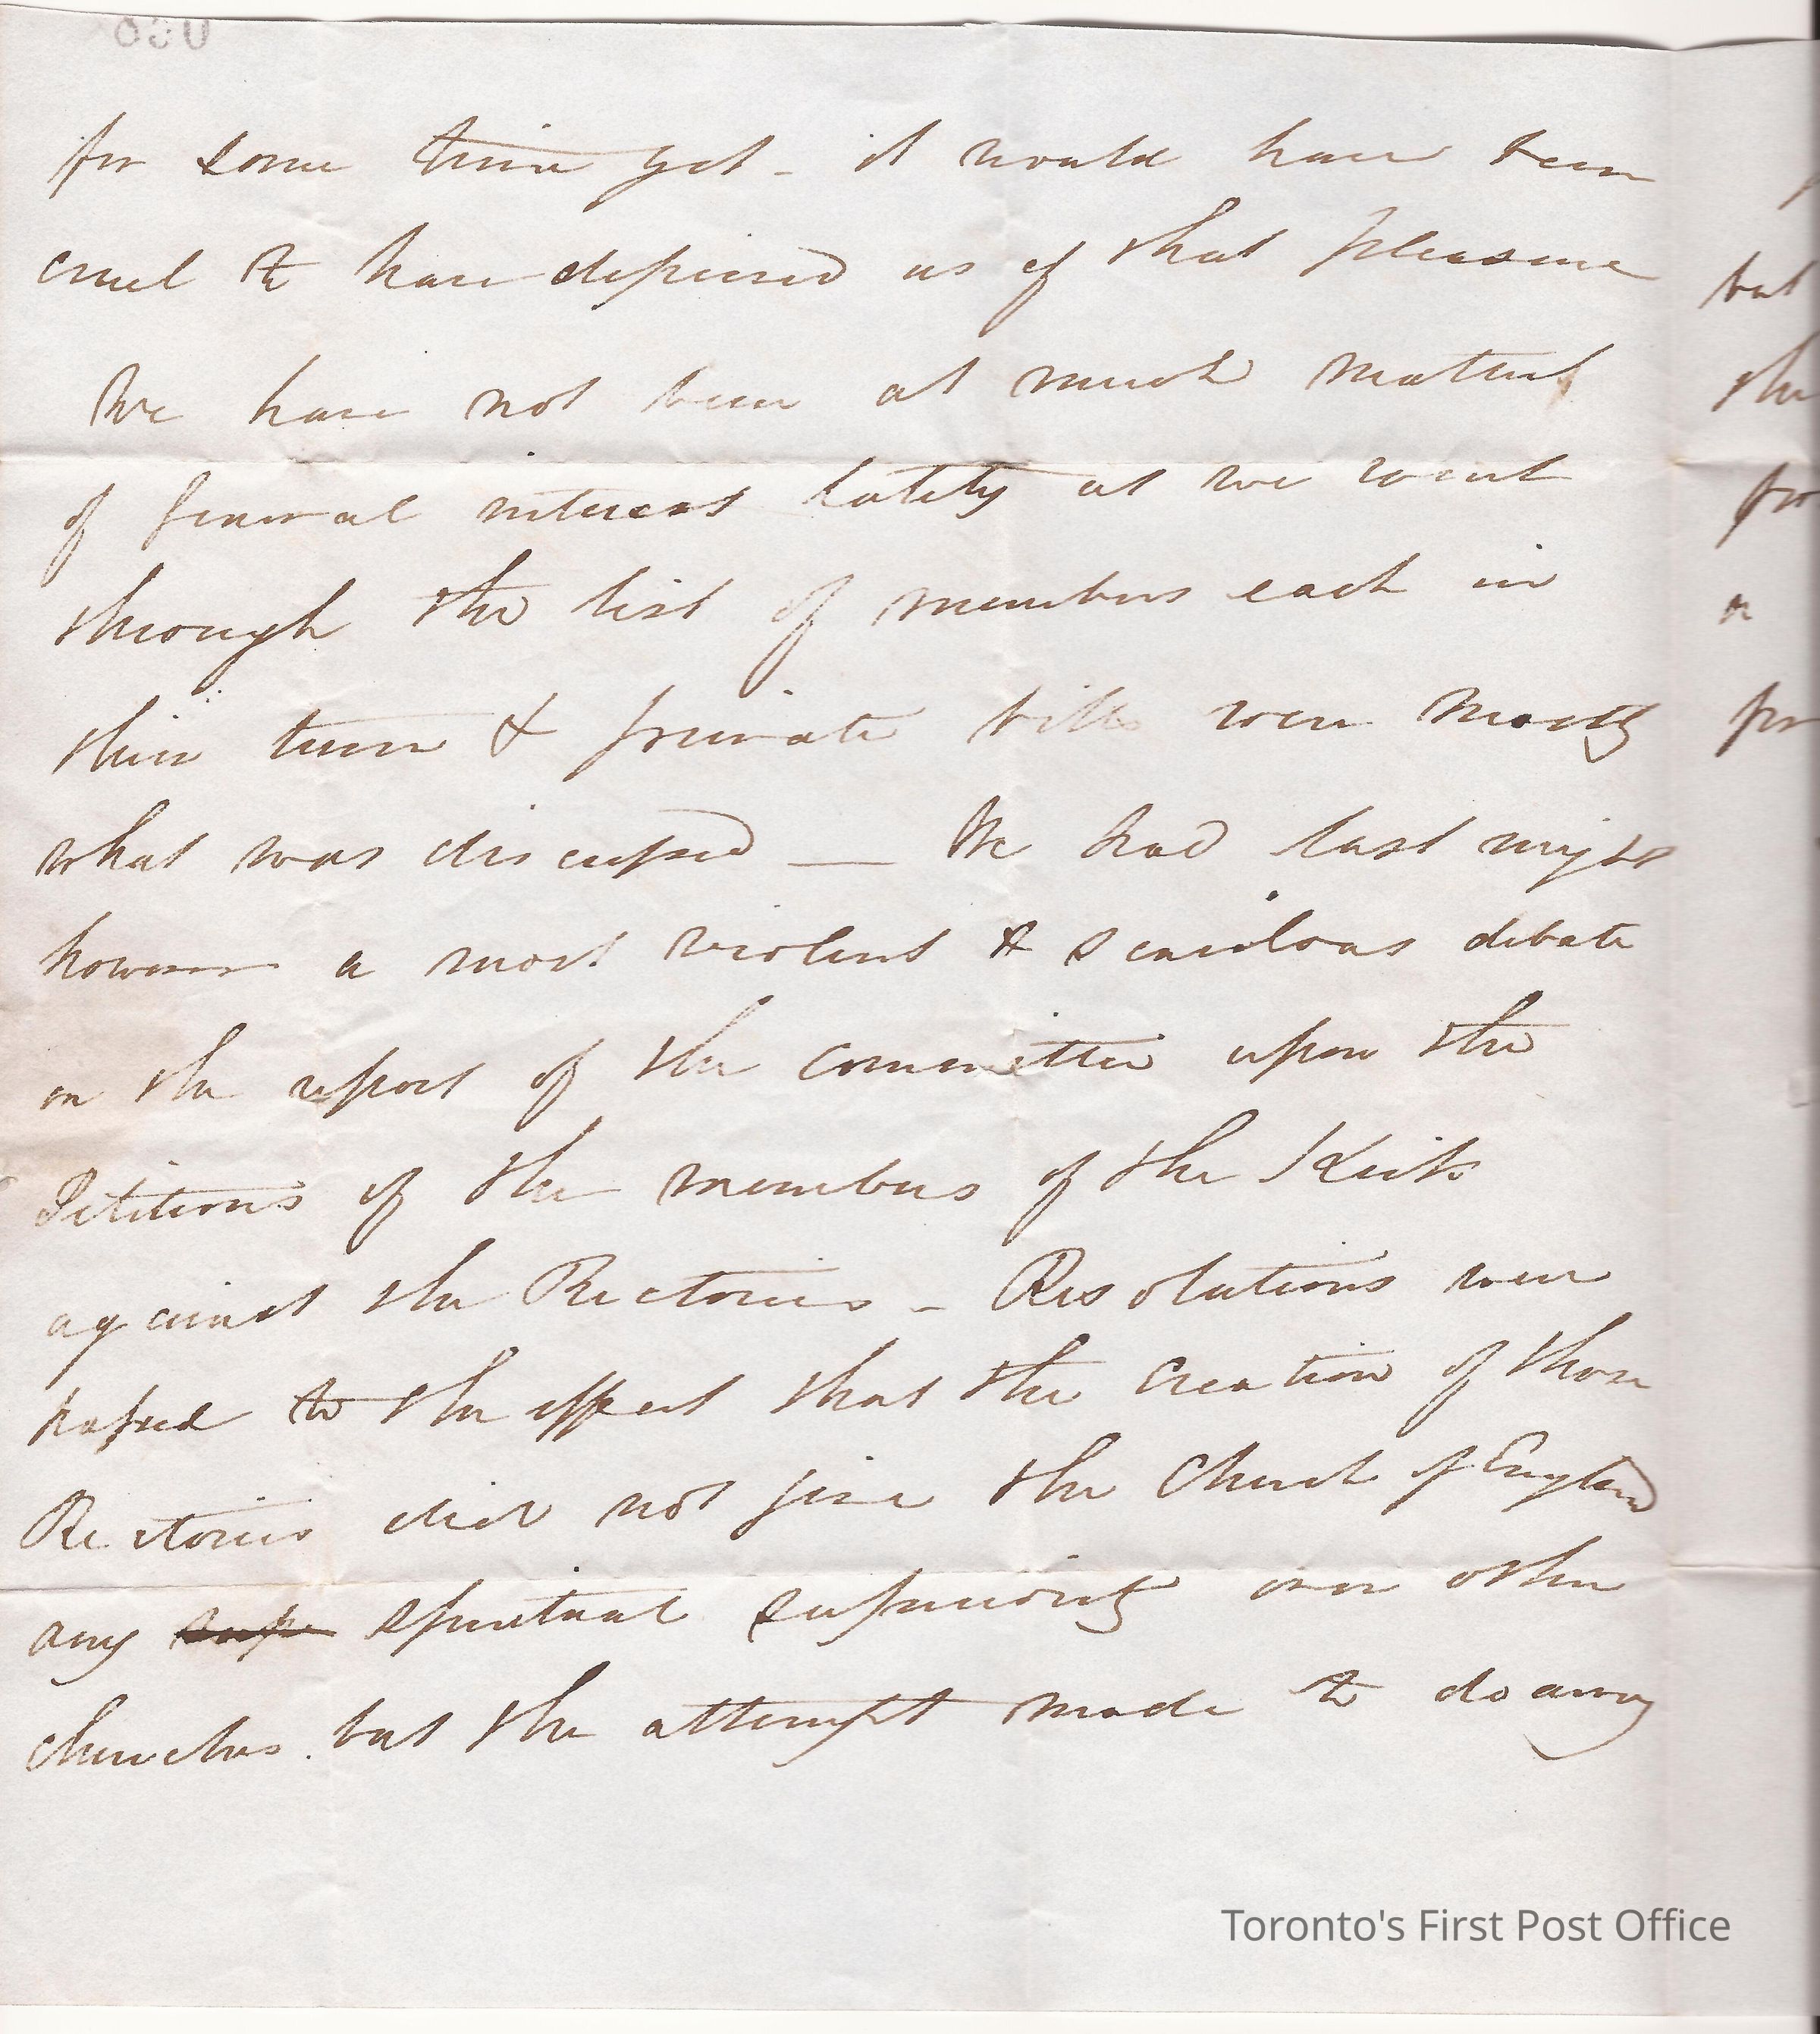 for some time yet - it would have been
cruel to have deprived us of that pleasure
We have not been at much matters
of general interest lately as we went
through the list of members each in
their turn & private bills were mostly
what was discussed — We had last night
however a most violent & scurilous debate
on the report of the committee upon the
Petitions of the members of the Kirk
against the Rectories - Resolutions were
passed to the effect that the creation of those
Rectories did not give the Church of England
any supe spiritual superiority over other
churches. but the attempt made to do away
but
the
for
a
for
Toronto's First Post Office